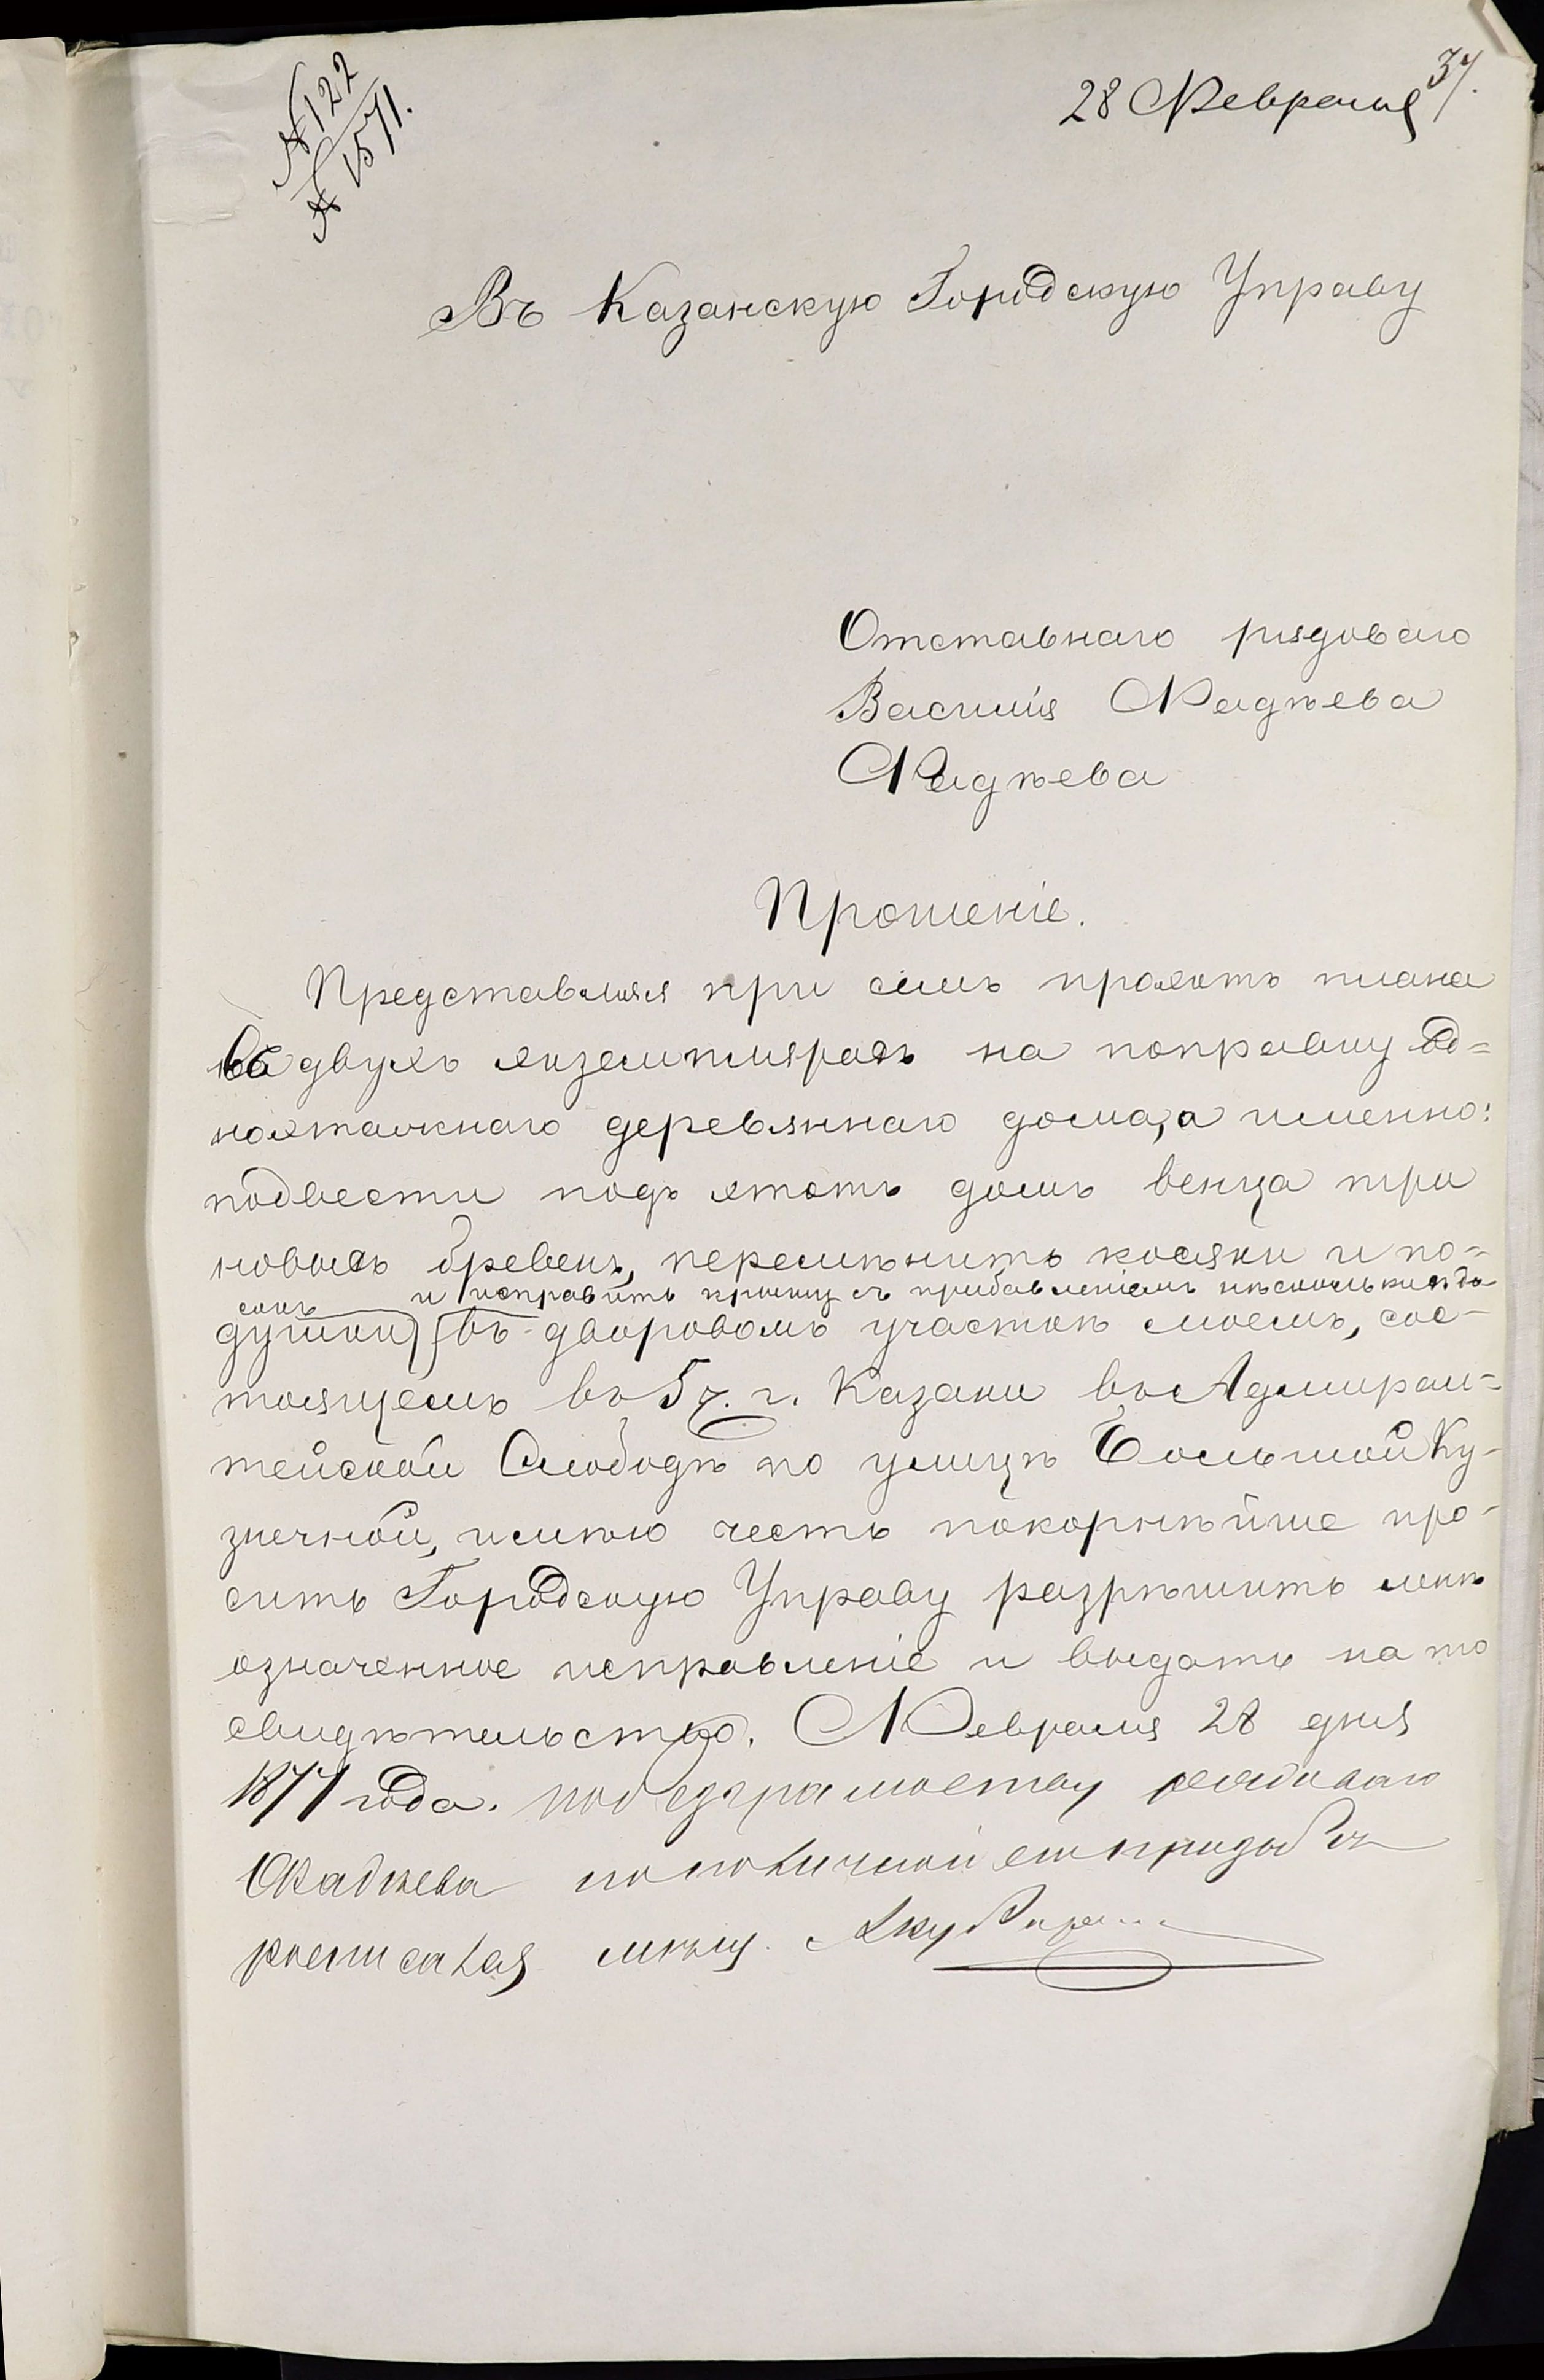 № 122
№ 1571.
37.
28 Февраля
Въ Казанскую Городскую Управу
Отставнаго рядоваго
Василія Фадѣева
Фадѣева
Прошеніе.
Представляя при семъ проэктъ плана
въ двухъ экземплярахъ на поправку од=
ноэтажнаго деревяннаго дома, а именно:
подвести подъ этотъ домъ венца три
новыхъ бревенъ, перемѣнить косяки и по=
и исправить крышу съ прибавленіемъ нѣсколькихъ до
сокъ
душки въ дворовомъ участкѣ моемъ, сос-
тоящемъ въ 5 ч. г. Казани въ Адмирал=
тейской Слободѣ по улицѣ Большой Ку-
знечной, имѣю честь покорнѣйше про-
сить Городскую Управу разрѣшить мнѣ
означенное исправленіе и выдать на то
свидѣтельство. Февраля 28 дня
1877 года.
Фадѣева по личной его прозьбѣ
росписался